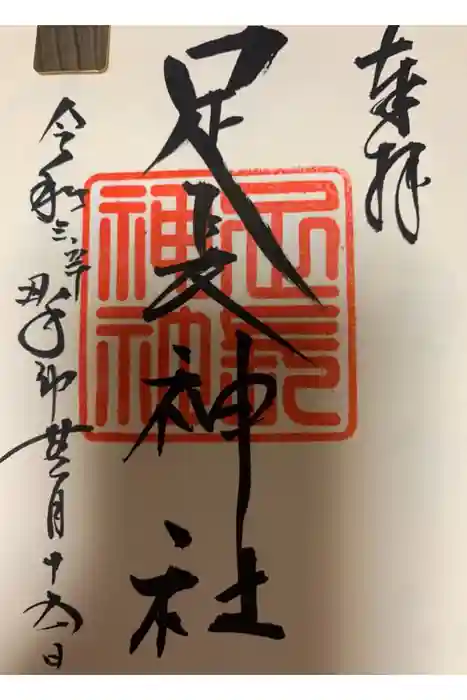 奉拝
足長神社
令和三年
月十六日
足長
神社